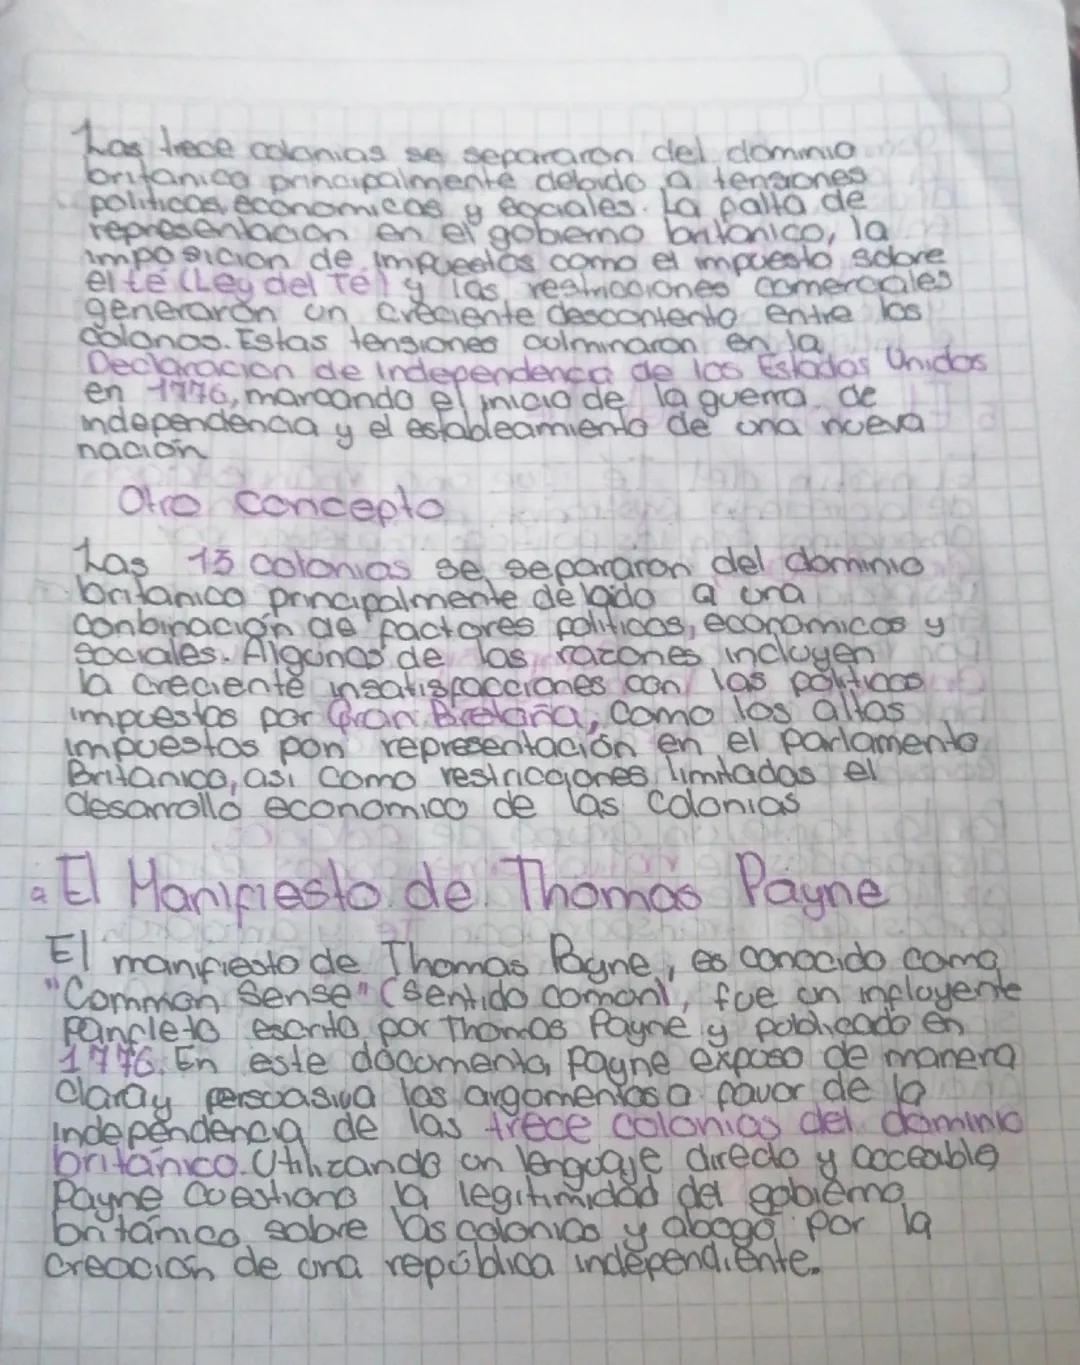 Las trece colonias se separaron del dominio
britanico principalmente debido a tensiones
politicas, economicas y sociales. La falta de
representacion en el gobierno britonico, la
imposicion de impuestos como el impuesto sobre
el té (Ley del Té) y las restricciones comerciales
generaron un creciente descontento entre los
colonos. Estas tensiones culminaron en la
Declaracion de independenca de los Estados Unidos
en 1776, marcando el inicio de la guerra de
independencia y el estableamiento de una nueva
nación
Otro concepto
Las 13 colonias se separaron del dominio
britanico principalmente debido a una
conbinación de factores politicos, economicos y
sociales. Algunas de las razones incluyen
la creciente insatisfacciones con las politicas
impuestas por Gran Bretaña, como los altos
impuestos pon representación en el parlamento
Britanico, asi como restricciones limitadas el
desarrollo economico de las colonias
El Manifiesto de Thomas Payne
El manifiesto de Thomas Payne, es conocido como
"Common Sense" (sentido comon), fue un influyente
panfleto escrito por Thomas Payne y publicado en
1776. En este documento, Payne expuso de manera
clara y persuasiva los argumentos a favor de la
independencia de las trece colonias del dominio
británico. Utilizando un lenguaje directo y acceable
Payne cuestiono la legitimidad del gobierno
británico sobre las colonias y abogó por la
creación de una república independiente.